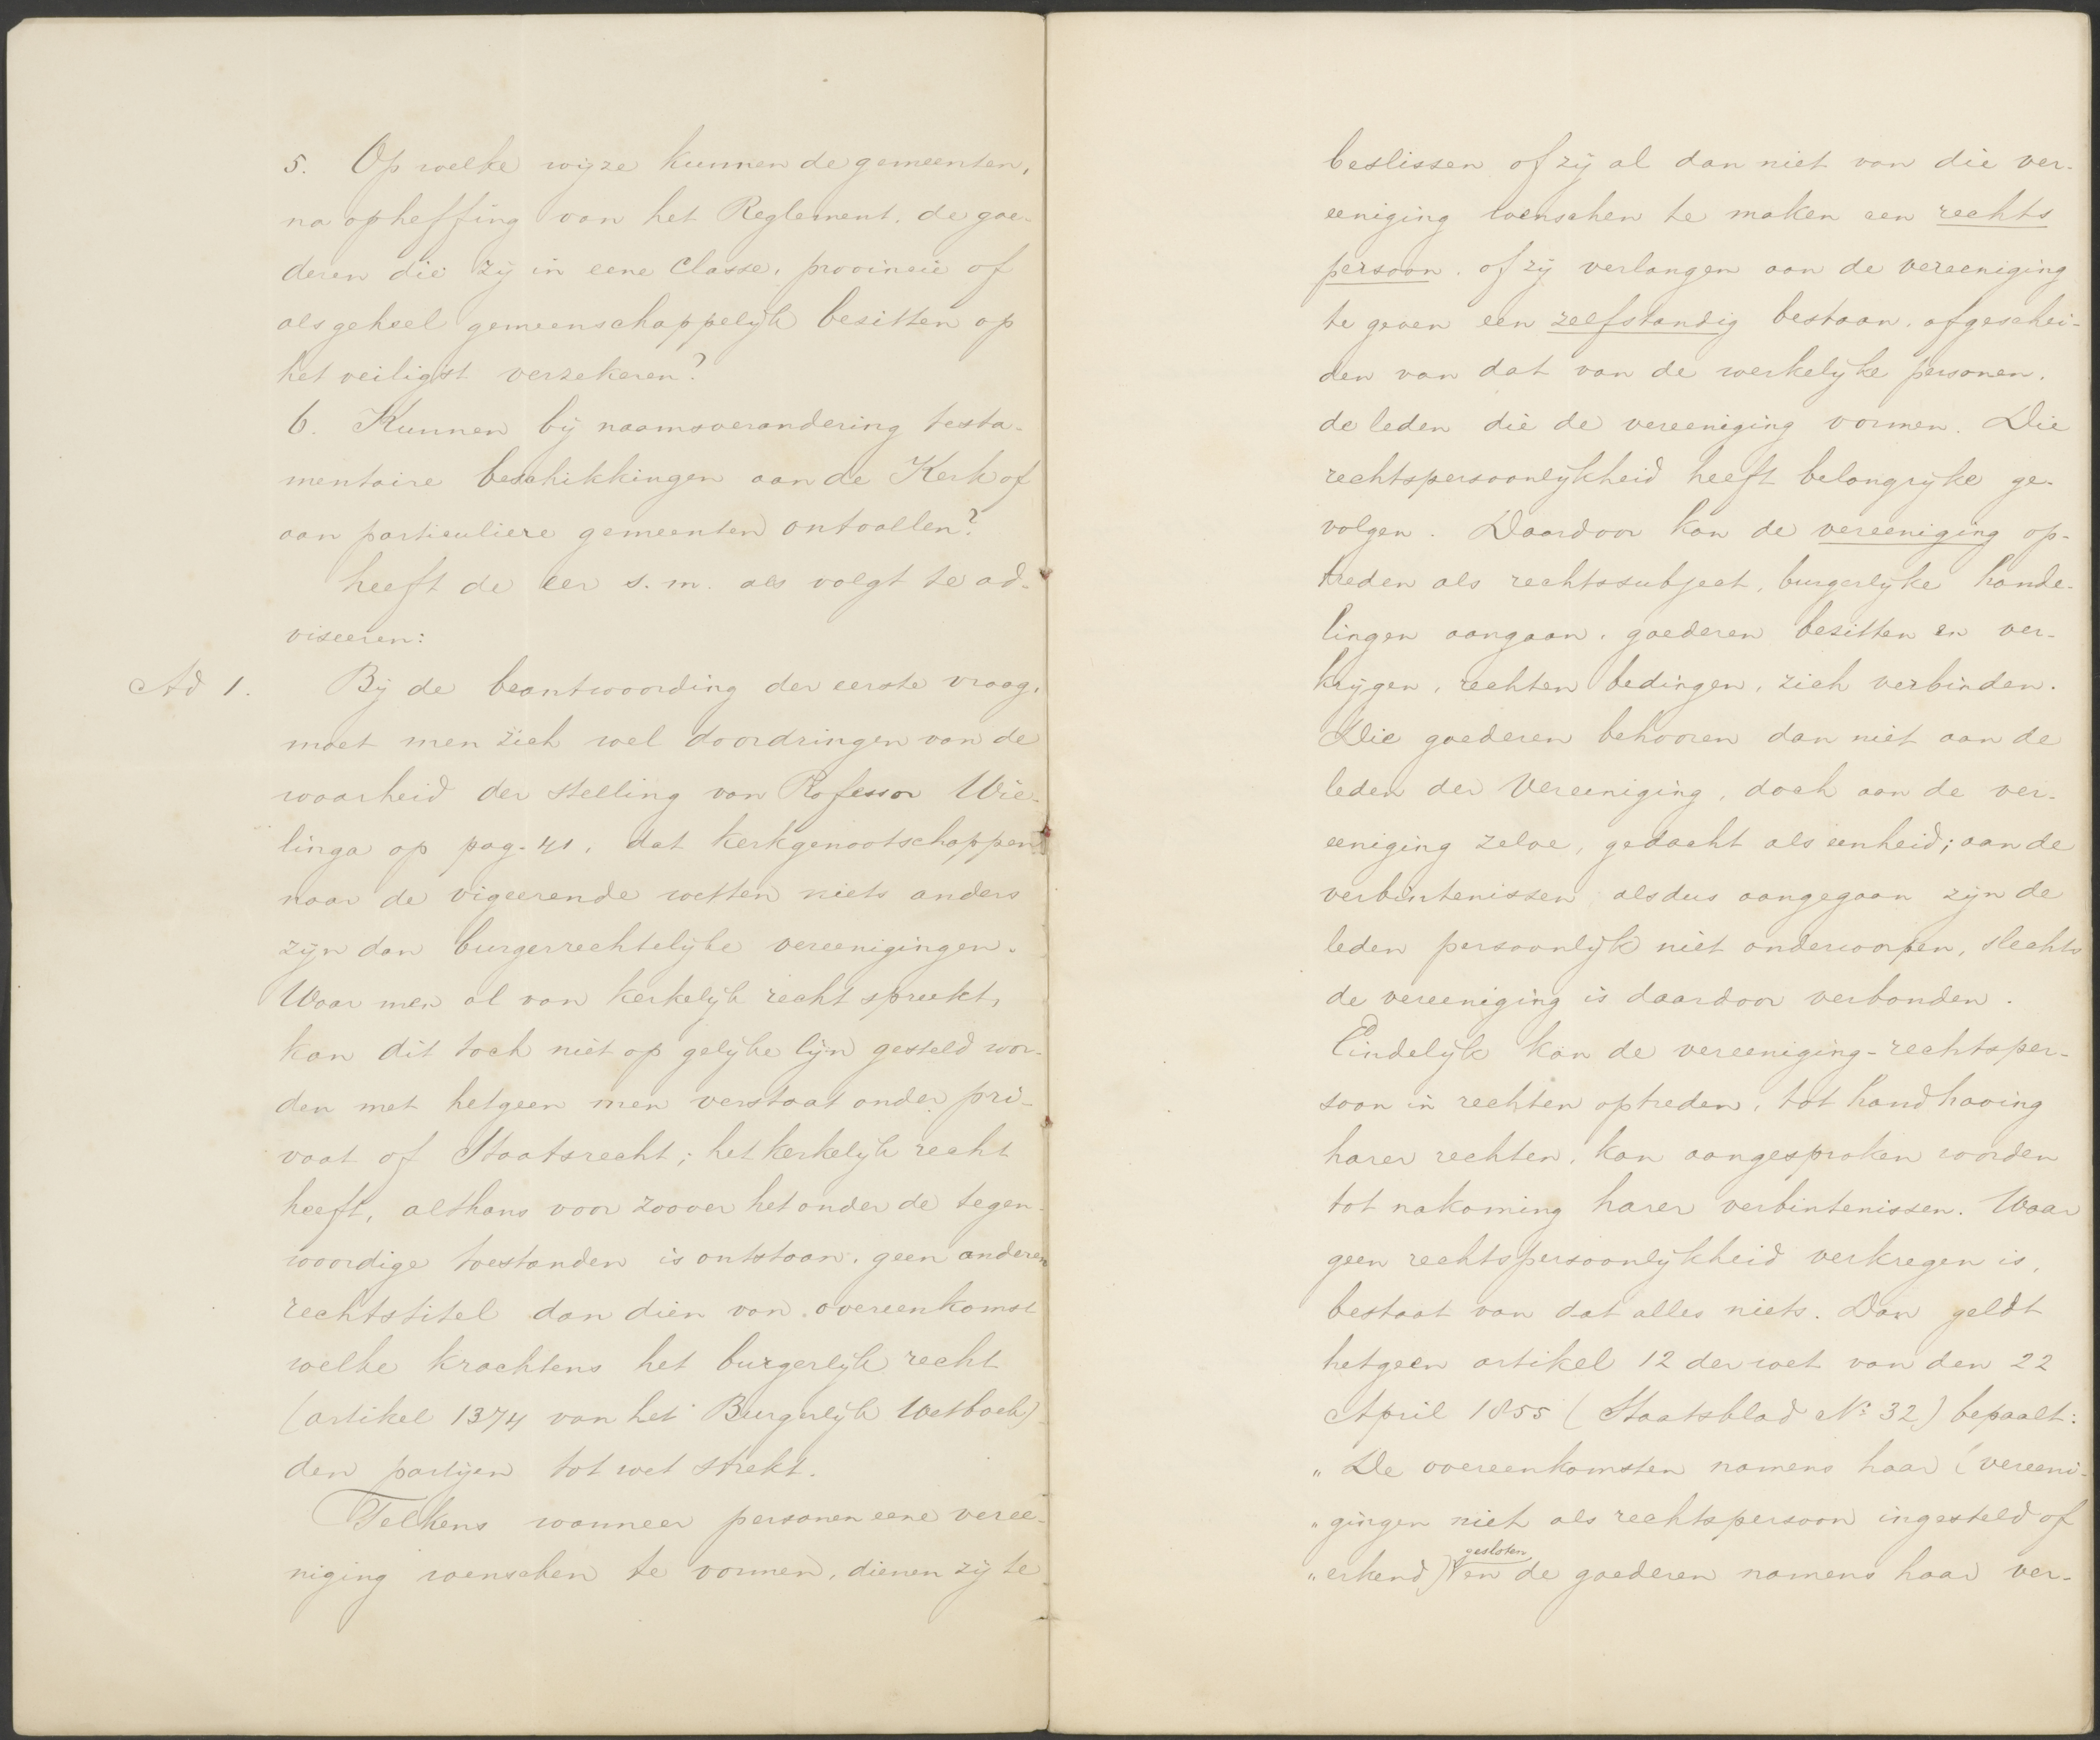 5. Op welke wijze kunnen de gemeenten,
na opheffing van het Reglement, de goe-
deren die zij in eene Classe, provincie of
als geheel gemeenschappelijk bezitten op
het veiligst verzekeren?
6. Kunnen bij naamsverandering testa-
mentaire beschikkingen aan de Kerk of
aan particuliere gemeenten ontvallen?
heeft de eer s.m. als volgt te ad-
viseeren:
Ad 1. Bij de beantwoording der eerste vraag,
moet men zich wel doordringen van de
waarheid der stelling van Professor Wie-
linga op pag. 41, dat kerkgenootschappen
naar de vigeerende wetten niets anders
zijn dan burgerrechtelijke vereenigingen.
Waar men al van kerkelijk recht spreekt,
kan dit toch niet op gelijke lijn gesteld wor-
den met hetgeen men verstaat onder pri-
vaat of Staatsrecht; het kerkelijk recht
heeft, althans voor zoover het onder de tegen-
woordige toestanden is ontstaan, geen anderen
rechtstitel dan dien van overeenkomst
welke krachtens het burgerlijk recht
(artikel 1374 van het Burgerlijk Wetboek)
den partijen tot wet strekt.
Telkens wanneer personen eene veree-
niging wenschen te vormen, dienen zij te
beslissen of zij al dan niet van die ver-
eeniging wenschen te maken een rechts
persoon, of zij verlangen aan de vereeniging
te geven een zelfstandig bestaan, afgeschei-
den van dat van de werkelijke personen,
de leden die de vereeniging vormen. Die
rechtspersoonlijkheid heeft belangrijke ge-
volgen. Daardoor kan de vereeniging op-
treden als rechtssubject, burgerlijke hande-
lingen aangaan, goederen bezitten en ver-
krijgen, rechten bedingen, zich verbinden.
Die goederen behooren dan niet aan de
leden der Vereeniging, doch aan de ver-
eeniging zelve, gedacht als eenheid; aan de
verbintenissen alsdus aangegaan zijn de
leden persoonlijk niet onderworpen, slechts
de vereeniging is daardoor verbonden.
Eindelijk kan de vereeniging-rechtsper-
soon in rechten optreden, tot handhaving
harer rechten, kan aangesproken worden
tot nakoming harer verbintenissen. Waar
geen rechtspersoonlijkheid verkregen is,
bestaat van dat alles niets. Dan geldt
hetgeen artikel 12 der wet van den 22
April 1855 (Staatsblad No 32) bepaalt:
„De overeenkomsten namens haar (vereeni-
„gingen niet als rechtspersoon ingesteld of
gesloten
„erkend) en de goederen namens haar ver-